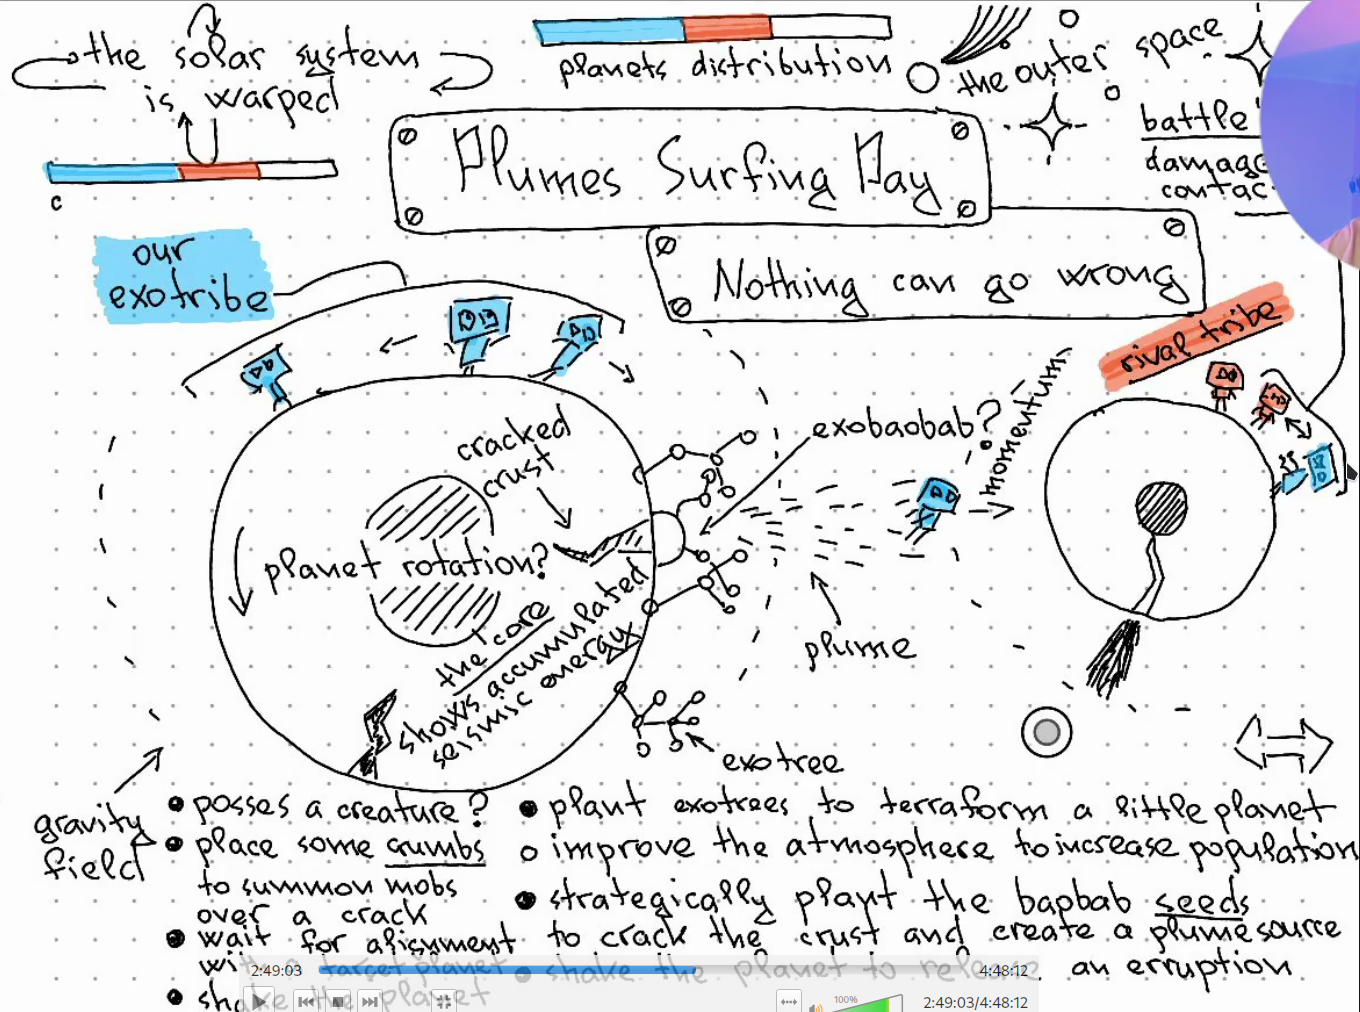 the solar system
is warped
planets distribution
the outer space
battle
damage
contac
c
Plumes Surfing Day
Nothing can go wrong
our
exotribe
rival tribe
cracked
crust
exobaobab?
momentum
planet rotation?
the core
shows accumulated
seismic energy
plume
exotree
gravity
field
posses a creature?
place some crumbs
to summon mobs
over a crack
wait for alignment
with target planet
shake the planet
plant exotrees to terraform a little planet
improve the atmosphere to increase population
strategically plant the baobab seeds
to crack the crust and create a plume source
shake the planet to release an erruption
2:49:03
4:48:12
100%
2:49:03/4:48:12